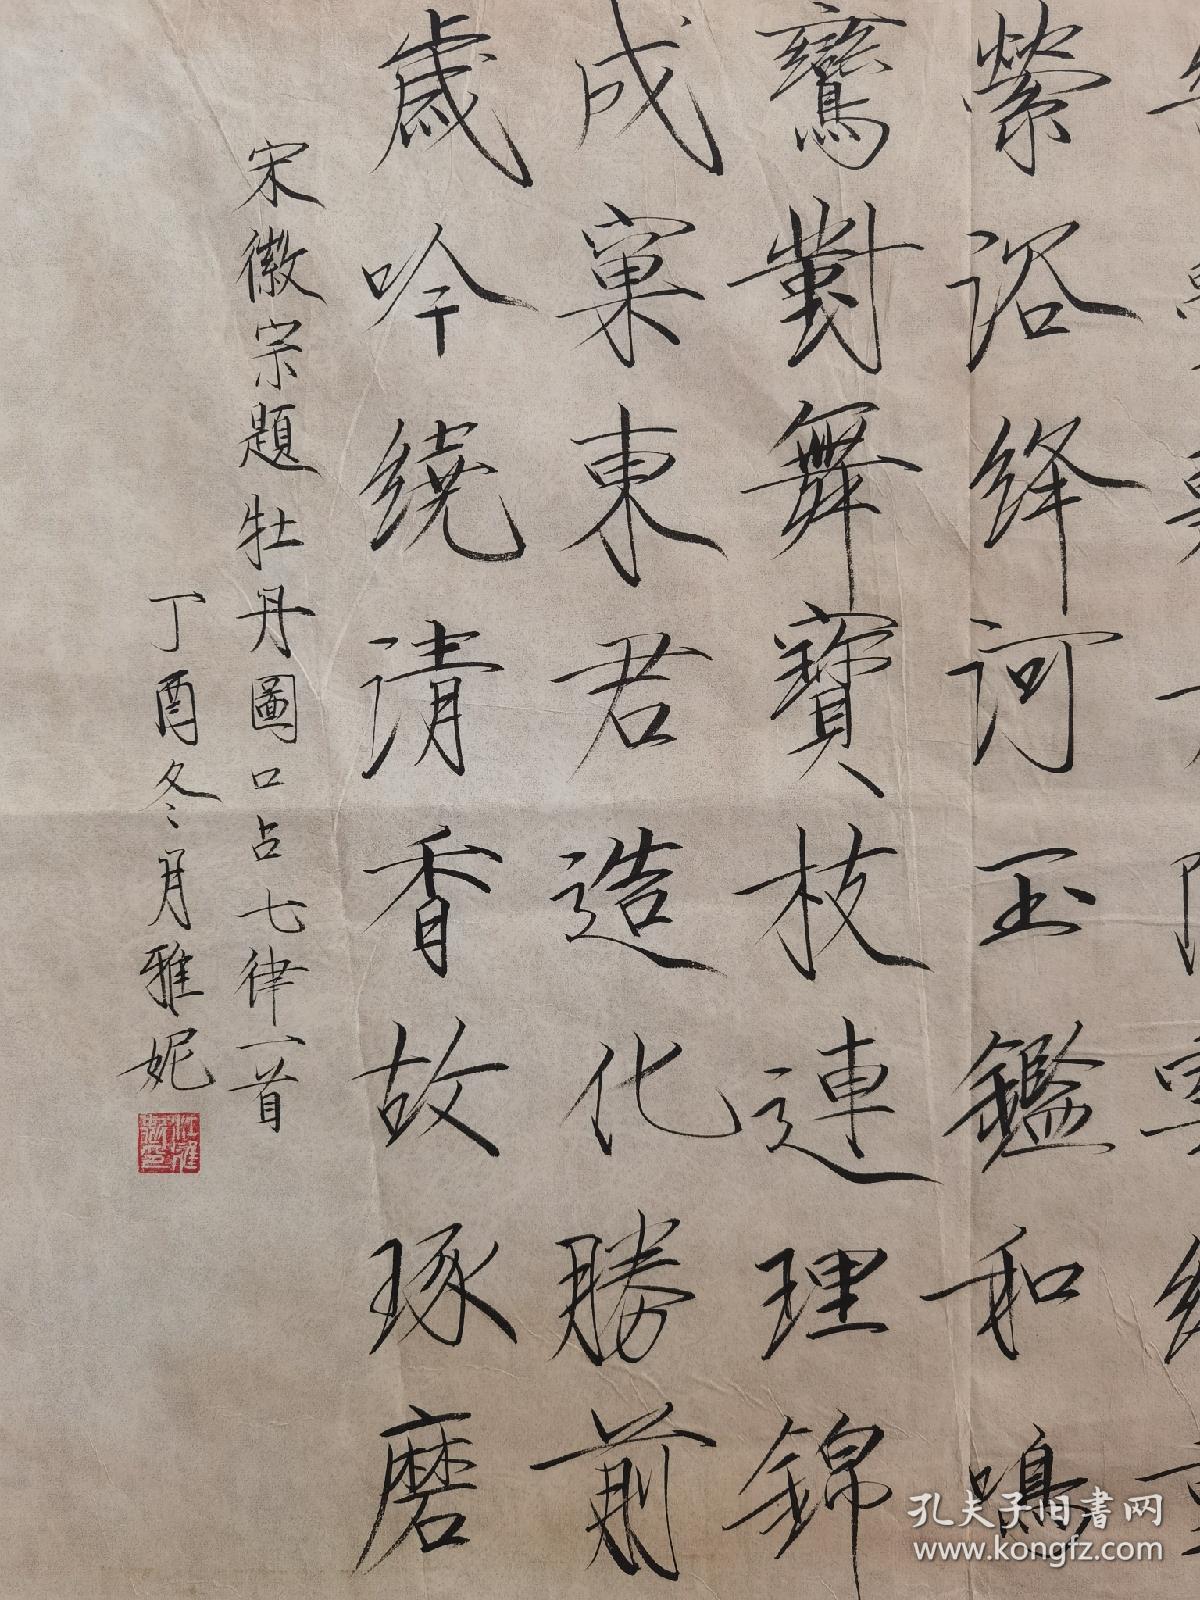 縈浴絳河玉鑑和鳴
鸞對舞寶枝連理錦
成窠東君造化勝前
歲吟繞清香故琢磨
宋徽宗題牡丹圖口占七律一首
丁酉冬月雅妮
孔夫子旧書网
www.kongfz.com